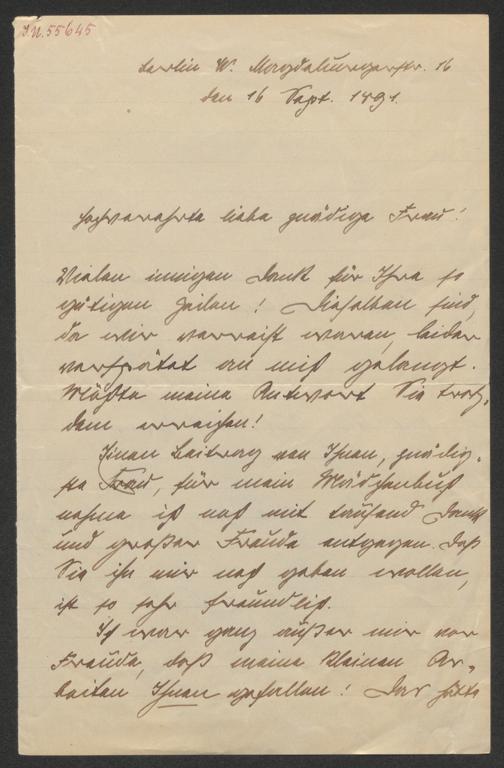 J.N. 55645
Berlin W. Magdeburgerstr. 16
den 16 Sept. 1891.
Hochverehrte liebe gnädige Frau!
Vielen innigen Dank für Ihre so
gütigen Zeilen! Dieselben sind,
da wir verreist waren, leider
verspätet an mich gelangt.
Möchte meine Antwort Sie trotz-
dem erreichen!
Einen Beitrag von Ihnen, gnädig-
ste Frau, für mein Mädchenbuch
nehme ich noch mit tausend Dank
und großer Freude entgegen. Daß
Sie ihn mir noch geben wollen,
ist so sehr freundlich.
Ich war ganz außer mir vor
Freude, daß meine kleinen Ar-
beiten Ihnen gefallen! Das hätte